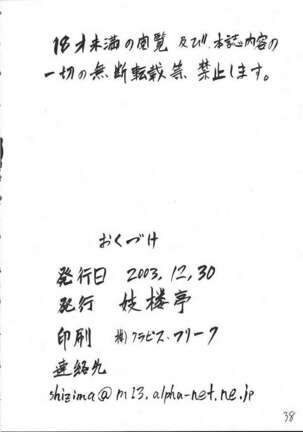 18才未満の閲覧 及び 本誌内容の
一切の無断転載等 禁止します。
おくづけ
発行日 2003.12.30
発行 妓楼亭
印刷 (株)クラビス・フリーク
連絡先
shizima@m13.alpha-net.ne.jp
38